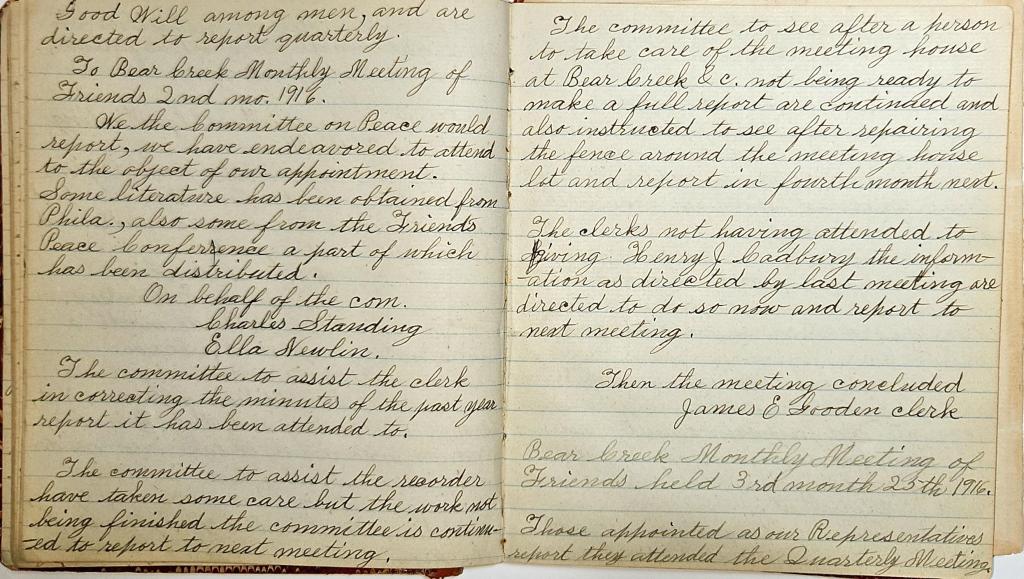 Good Will among men, and are
directed to report quarterly.
To Bear Creek Monthly Meeting of
Friends 2nd mo. 1916.
We the Committee on Peace would
report, we have endeavored to attend
to the object of our appointment.
Some literature has been obtained from
Phila., also some from the Friends
Peace Conference a part of which
has been distributed.
On behalf of the com.
Charles Standing
Ella Newlin.
The committee to assist the clerk
in correcting the minutes of the past year
report it has been attended to.
The committee to assist the recorder
have taken some care but the work not
being finished the committee is continu-
-ed to report to next meeting.
The committee to see after a person
to take care of the meeting house
at Bear Creek & c. not being ready to
make a full report are continued and
also instructed to see after repairing
the fence around the meeting house
lot and report in fourth month next.
The clerks not having attended to
giving Henry J Cadbury the inform-
-ation as directed by last meeting are
directed to do so now and report to
next meeting.
Then the meeting concluded
James E Gooden clerk
Bear Creek Monthly Meeting of
Friends held 3rd month 25th 1916.
Those appointed as our Representatives
report they attended the Quarterly Meeting.